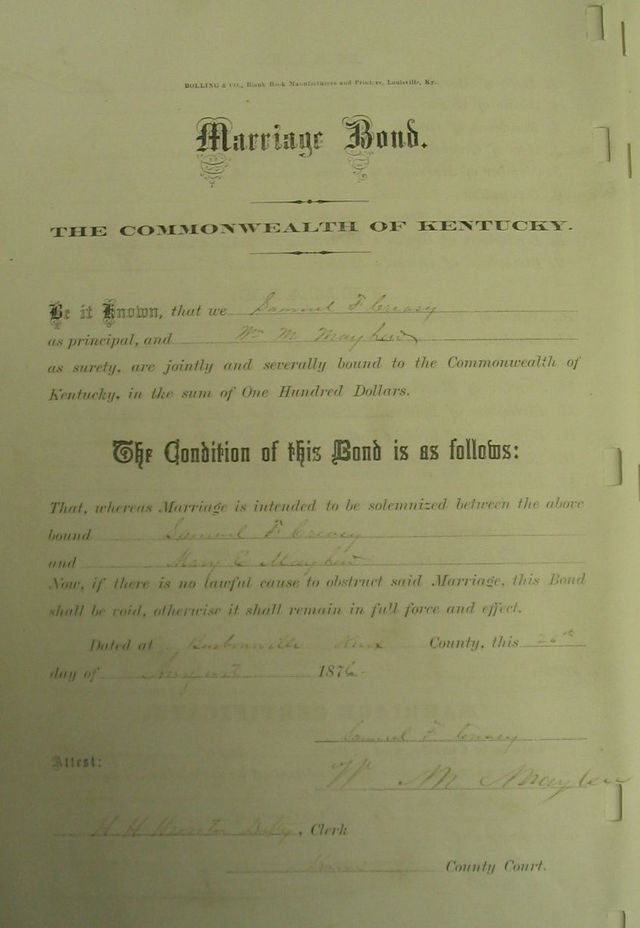 BOLLING & CO., Blank Book Manufacturers and Printers, Louisville, Ky.
Marriage Bond.
THE COMMONWEALTH OF KENTUCKY.
Be it Known, that we Samuel F Creasy
as principal, and Wm M Mayhew
as surety, are jointly and severally bound to the Commonwealth of
Kentucky, in the sum of One Hundred Dollars.
The Condition of this Bond is as follows:
That, whereas Marriage is intended to be solemnized between the above
bound Samuel F Creasy
and Mary E Mayhew
Now, if there is no lawful cause to obstruct said Marriage, this Bond
shall be void, otherwise it shall remain in full force and effect.
Dated at Barbourville Knox County, this 26th
day of August 1876
Samuel F. Creasy
Attest:
W M Mayhew
H H, Clerk
County Court.